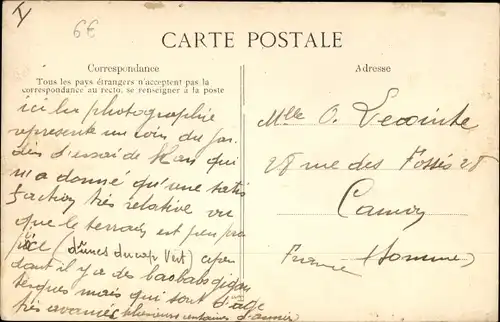 6€
CARTE POSTALE
Correspondance
Tous les pays étrangers n'acceptent pas la
correspondance au recto, se renseigner à la poste
ici la photographie
represente un coin du jar
din d'essai de Han qui
m'a donné qu'une satis
faction très relative vu
que le terrain est peu pro
pice (dunes du cap Vert) cepen
dant il y a des baobabs gigan
tesques mais qui sont d'age
très avancés plusieurs centaines d'années
Adresse
Mlle O. Lecointe
28 rue des Fossés 28
France (Somme)